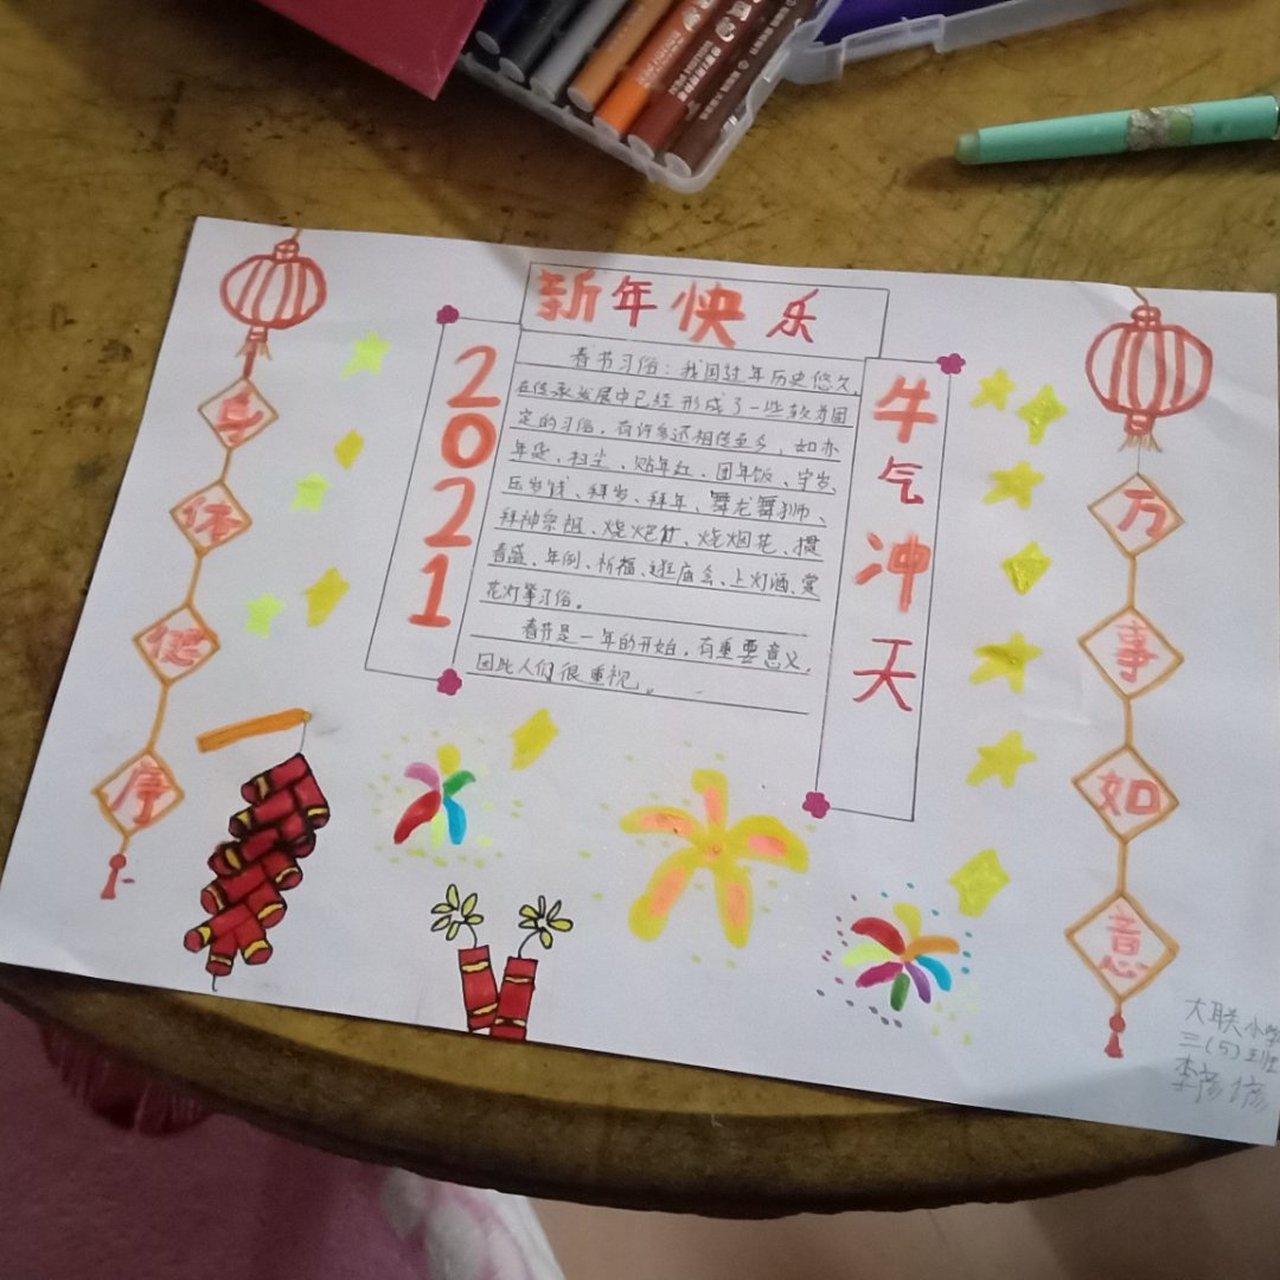 新年快乐
2021
牛气冲天
春节习俗：我国过年历史悠久，
在传承发展中已经形成了一些较为固
定的习俗，有许多还相传至今，如办
年货、扫尘、贴年红、团年饭、守岁、
压岁钱、拜岁、拜年、舞龙舞狮、
拜神祭祖、烧炮竹、烧烟花、掼
春盛、年例、祈福、逛庙会、上灯酒、赏
花灯等习俗。
春节是一年的开始，有重要意义，
因此人们很重视。
身体健
万事如意
大联小学
三（5）班
李彦